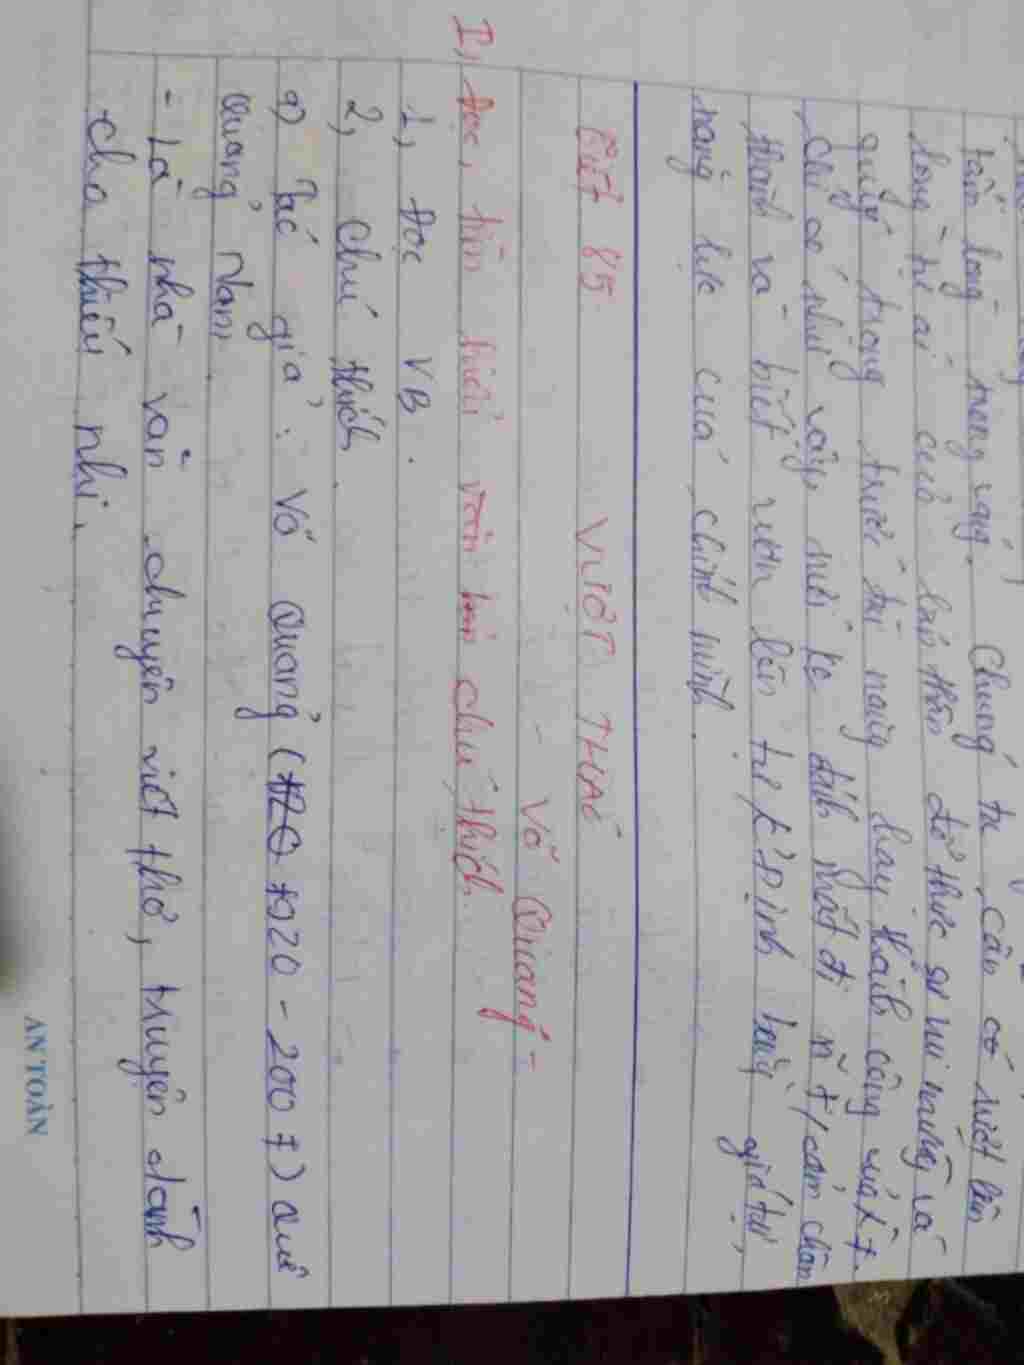 tấm lòng trong sáng. Chúng ta cần có vượt lên
lòng tự ái của bản thân để thực sự vui mừng và
quý trọng trước tài năng hay thành công của
chỉ có như vậy, mới ko đánh mất đi t/cảm chân
thành và biết vươn lên tự k.định bằng giá trị,
năng lực của chính mình.
Tiết 85 VƯỢT THÁC
- Võ Quảng -
I, Đọc, tìm hiểu văn bản chú thích.
1, Đọc VB.
2, Chú thích.
a) Tác giả: Võ Quảng (1920 - 2007) quê
Quảng Nam.
- Là nhà văn chuyên viết thơ, truyện dành
cho thiếu nhi.
AN TOÀN